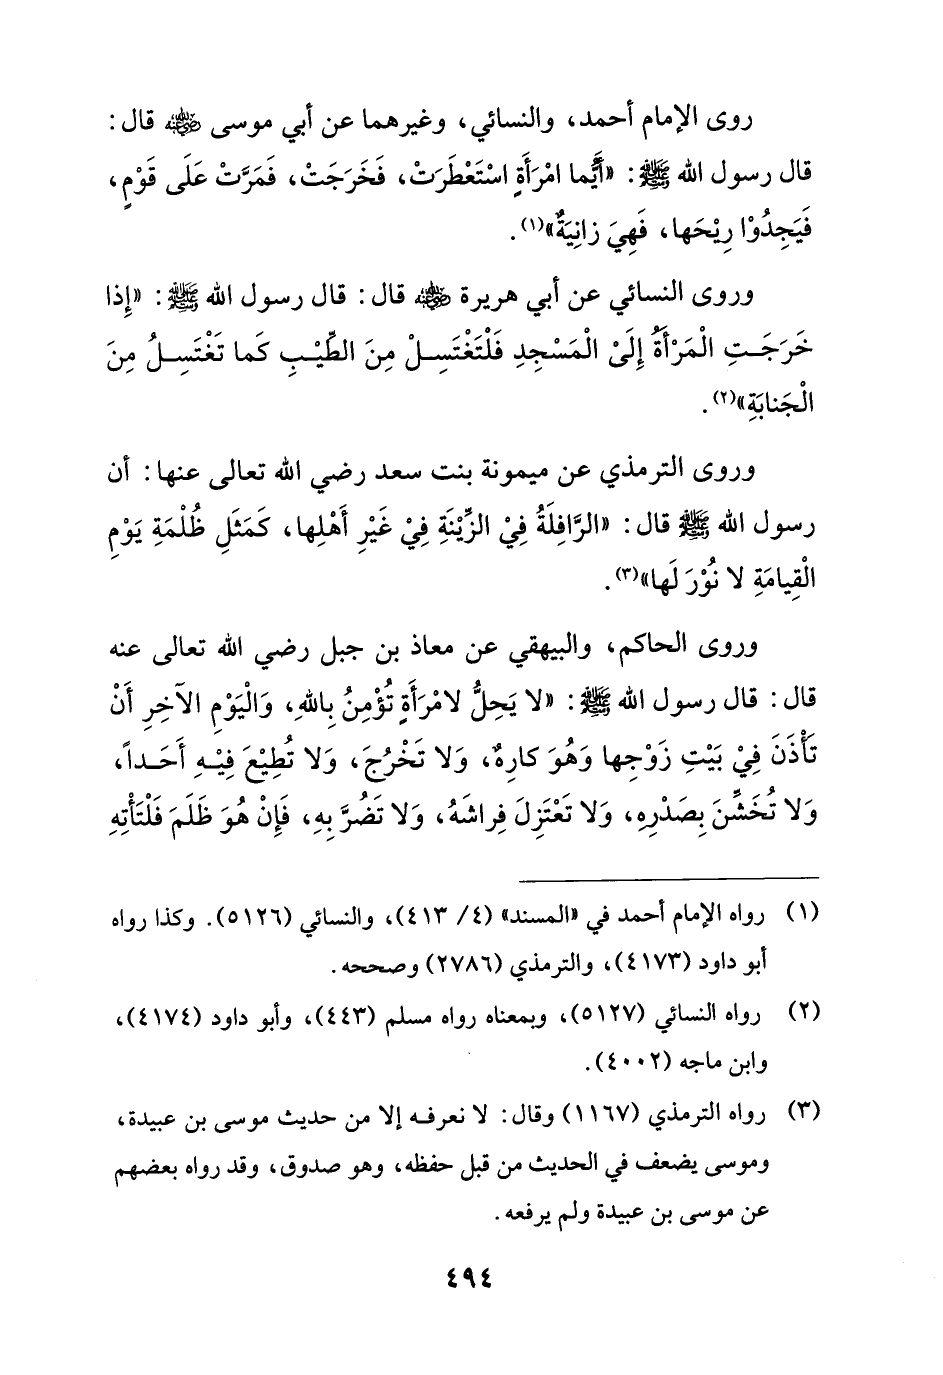 روى الإمام أحمد، والنسائي، وغيرهما عن أبي موسى رضي الله عنه قال:
قال رسول الله ﷺ: «أَيُّما امْرَأَةٍ اسْتَعْطَرَتْ، فَخَرَجَتْ، فَمَرَّتْ عَلَى قَوْمٍ،
فَيَجِدُوْا رِيْحَها، فَهِيَ زانِيَةٌ»(١).
وروى النسائي عن أبي هريرة رضي الله عنه قال: قال رسول الله ﷺ: «إِذا
خَرَجَتِ الْمَرْأَةُ إِلَىْ الْمَسْجِدِ فَلْتَغْتَسِلْ مِنَ الطِّيْبِ كَما تَغْتَسِلُ مِنَ
الْجَنابَةِ»(٢).
وروى الترمذي عن ميمونة بنت سعد رضي الله تعالى عنها: أن
رسول الله ﷺ قال: «الرَّافِلَةُ فِيْ الزِّيْنَةِ فِيْ غَيْرِ أَهْلِها، كَمَثَلِ ظُلْمَةِ يَوْمِ
الْقِيامَةِ لا نُوْرَ لَها»(٣).
وروى الحاكم، والبيهقي عن معاذ بن جبل رضي الله تعالى عنه
قال: قال رسول الله ﷺ: «لا يَحِلُّ لامْرَأَةٍ تُؤْمِنُ بِاللهِ، وَالْيَوْمِ الآخِرِ أَنْ
تَأْذَنَ فِيْ بَيْتِ زَوْجِها وَهُوَ كارِهٌ، وَلا تَخْرُجَ، وَلا تُطِيْعَ فِيْهِ أَحَداً،
وَلا تُخَشِّنَ بِصَدْرِهِ، وَلا تَعْتَزِلَ فِراشَهُ، وَلا تَضُرَّ بِهِ، فَإِنْ هُوَ ظَلَمَ فَلْتَأْتِهِ
(١) رواه الإمام أحمد في «المسند» (٤/ ٤١٣)، والنسائي (٥١٢٦). وكذا رواه
أبو داود (٤١٧٣)، والترمذي (٢٧٨٦) وصححه.
(٢) رواه النسائي (٥١٢٧)، وبمعناه رواه مسلم (٤٤٣)، وأبو داود (٤١٧٤)،
وابن ماجه (٤٠٠٢).
(٣) رواه الترمذي (١١٦٧) وقال: لا نعرفه إلا من حديث موسى بن عبيدة،
وموسى يضعف في الحديث من قبل حفظه، وهو صدوق، وقد رواه بعضهم
عن موسى بن عبيدة ولم يرفعه.
٤٩٤